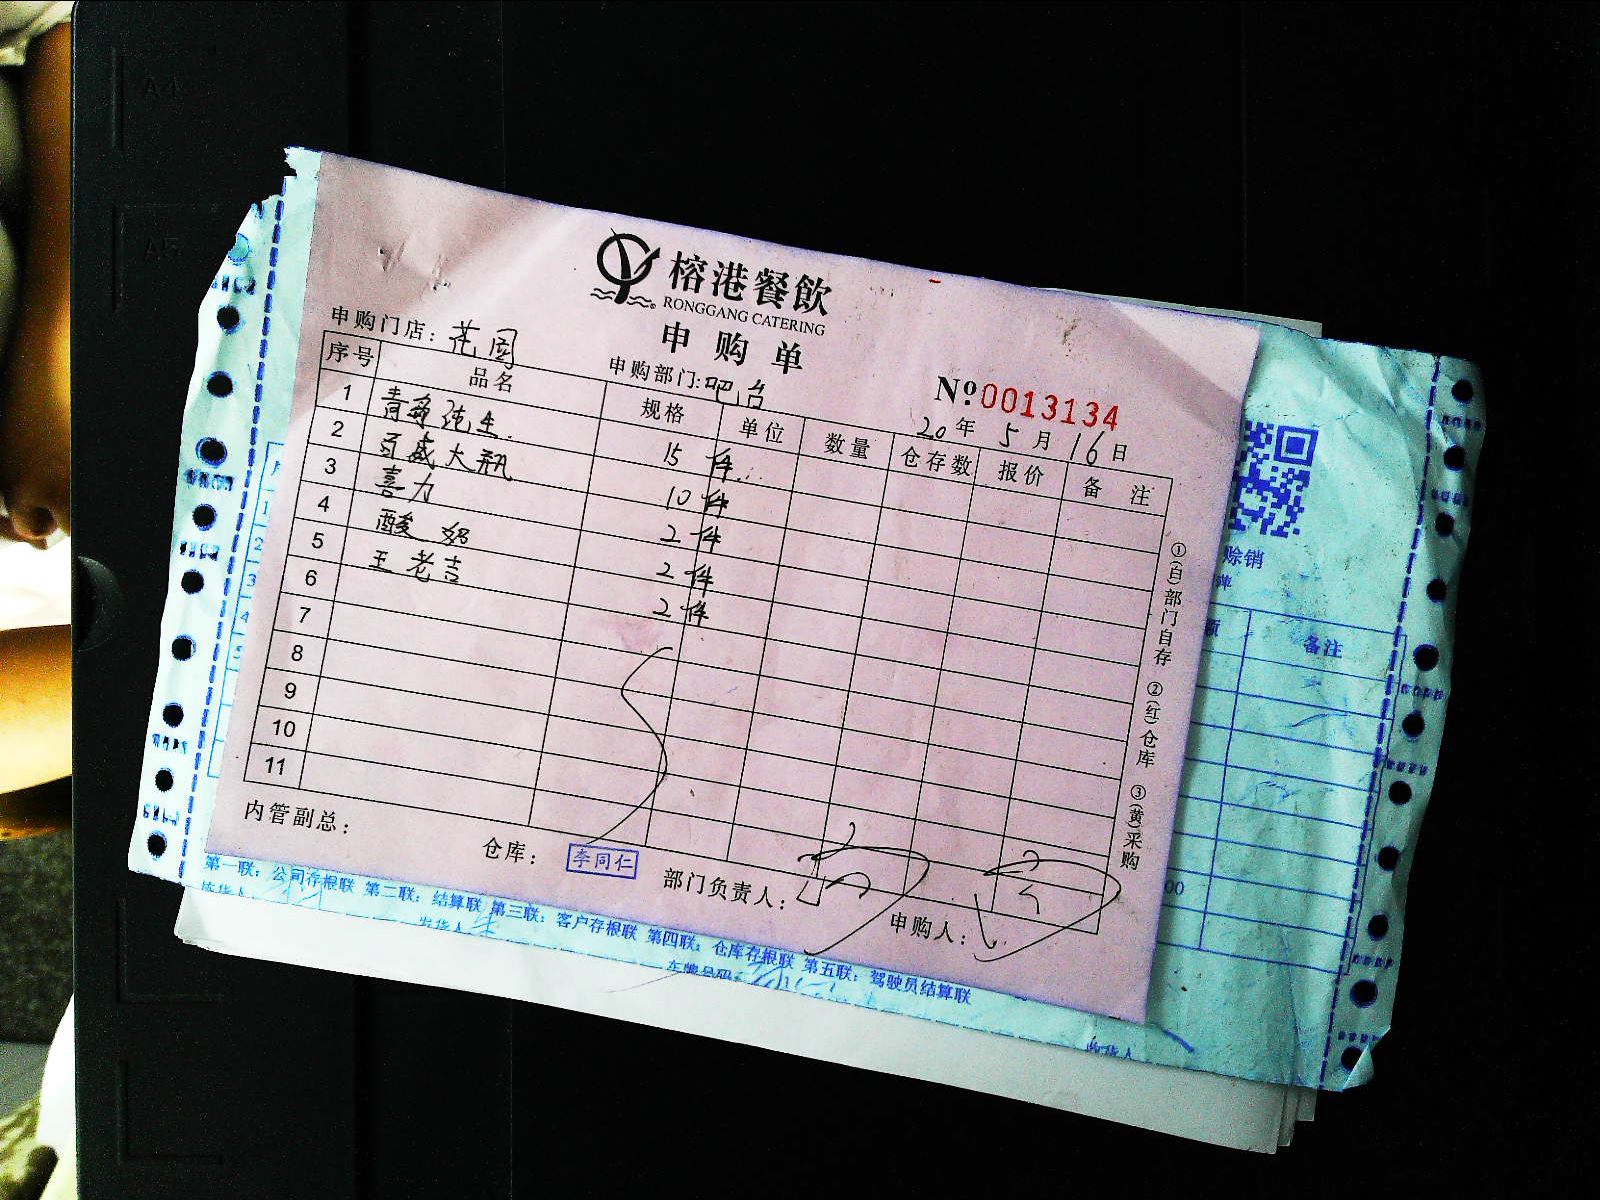 榕港餐飲
RONGGANG CATERING
申购单
申购门店：花园
申购部门:吧台
Nº 0013134
20年5月16日
序号 品名 规格 单位 数量 仓存数 报价 备注
1 青岛纯生 15 件
2 百威大瓶 10 件
3 喜力 2 件
4 酸奶 2 件
5 王老吉 2 件
6
7
8
9
10
11
①(白)部门自存 ②(红)仓库 ③(黄)采购
内管副总：
仓库：李同仁
部门负责人：
申购人：
赊销
备注
第一联：公司存根联 第二联：结算联 第三联：客户存根联 第四联：仓库存根联 第五联：驾驶员结算联
发货人
车牌号码
A4
A5